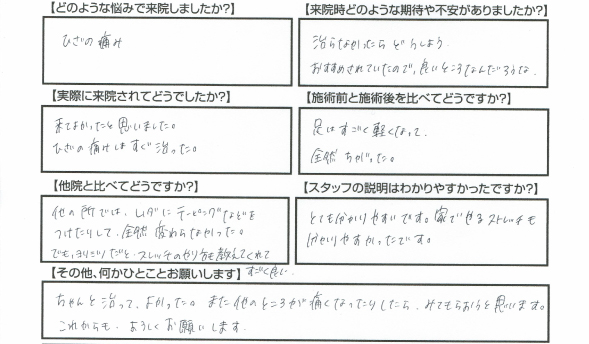 【どのような悩みで来院しましたか?】
ひざの痛み
【来院時どのような期待や不安がありましたか?】
治らなかったらどうしよう。
おすすめされていたので、良いところなんだろうな。
【実際に来院されてどうでしたか?】
来てよかったと思いました。
ひざの痛みはすぐ治った。
【施術前と施術後を比べてどうですか?】
足はすごく軽くなって、
全然ちがった。
【他院と比べてどうですか?】
他の所では、テーピングなどを
つけたりして、全然変わらなかった。
でも、だと、ストレッチのやり方も教えてくれて
すごく良い。
【スタッフの説明はわかりやすかったですか?】
とても分かりやすいです。家でやるストレッチも
分かりやすかったです。
【その他、何かひとことお願いします】
ちゃんと治って、よかった。また他のところが痛くなったりしたら、みてもらおうと思います。
これからも、よろしくお願いします。